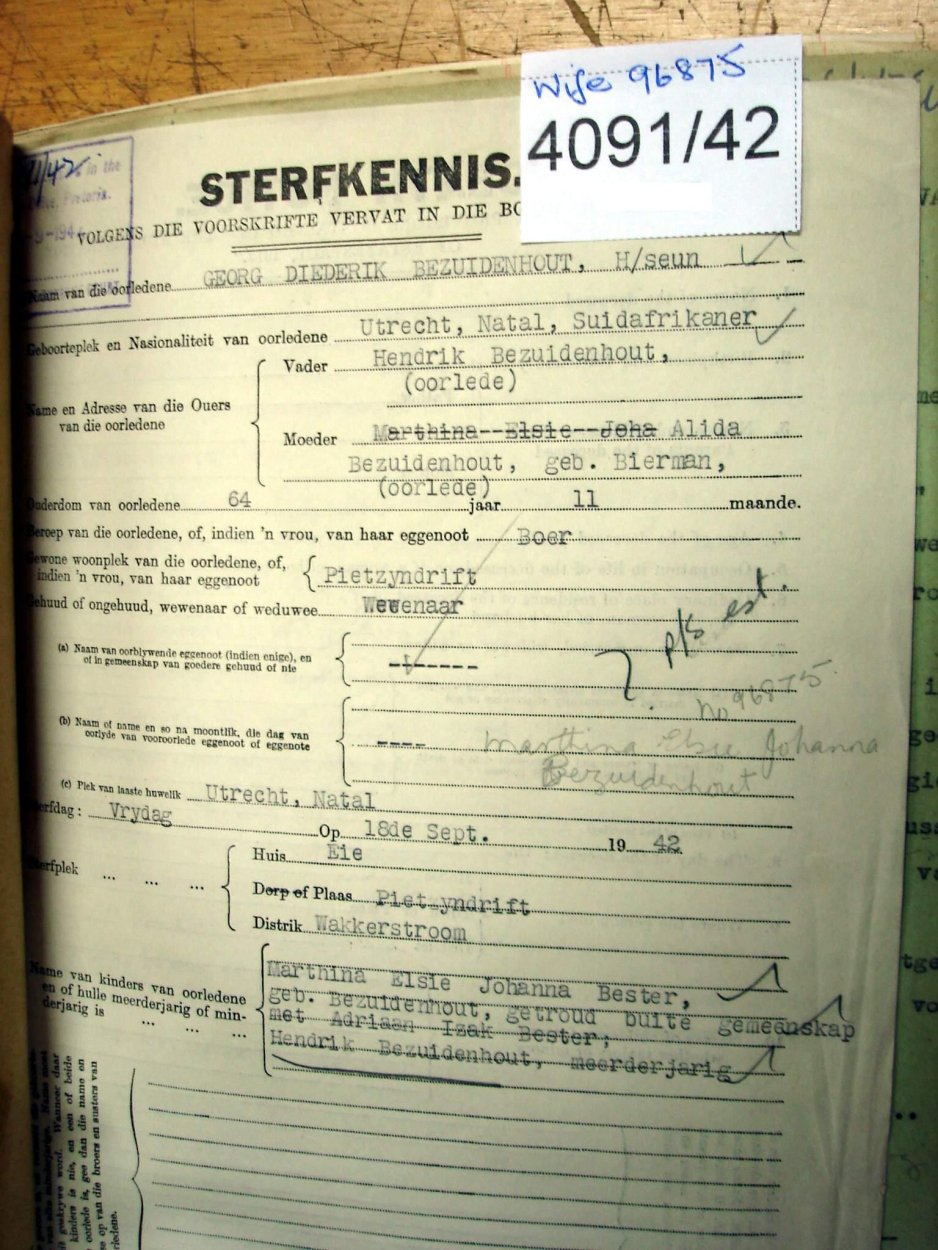 Wife 96875
4091/42
in the
STERFKENNIS.
VOLGENS DIE VOORSKRIFTE VERVAT IN DIE
Naam van die oorledene GEORG DIEDERIK BEZUIDENHOUT, H/seun
Geboorteplek en Nasionaliteit van oorledene Utrecht, Natal, Suidafrikaner
Name en Adresse van die Ouers van die oorledene
Vader Hendrik Bezuidenhout,
(oorlede)
Moeder Marthina Elsie Joha Alida
Bezuidenhout, geb. Bierman,
(oorlede)
Ouderdom van oorledene 64 jaar 11 maande.
Beroep van die oorledene, of, indien 'n vrou, van haar eggenoot Boer
Gewone woonplek van die oorledene, of,
indien 'n vrou, van haar eggenoot Pietzyndrift
Gehuud of ongehuud, wewenaar of weduwee Wewenaar
(a) Naam van oorblywende eggenoot (indien enige), en
of in gemeenskap van goedere gehuud of nie -------
p/s est.
no 96875
(b) Naam of name en so na moontlik, die dag van
oorlyde van vooroorlede eggenoot of eggenote ----
Marthina Elsie Johanna
Bezuidenhout
(c) Plek van laaste huwelik Utrecht, Natal
Sterfdag: Vrydag Op 18de Sept. 1942
Sterfplek ... ... ...
Huis Eie
Dorp of Plaas Piet yndrift
Distrik Wakkerstroom
Name van kinders van oorledene
en of hulle meerderjarig of min-
derjarig is ... ... ...
Marthina Elsie Johanna Bester,
geb. Bezuidenhout, getroud buite gemeenskap
met Adriaan Izak Bester;
Hendrik Bezuidenhout, meerderjarig